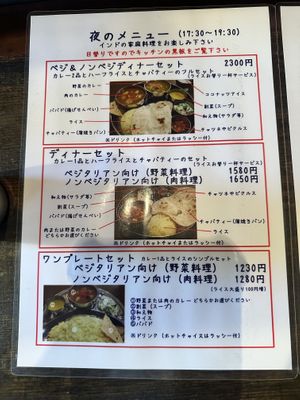 夜のメニュー (17:30～19:30)
インドの家庭料理をお楽しみ下さい
日替りですのでキッチンの黒板をご覧下さい
ベジ&ノンベジディナーセット 2300円
カレー2品とハーフライスとチャパティーのフルセット
(ライスお替り一杯サービス)
野菜のカレー
肉のカレー
パパド(揚げせんべい)
ライス
チャパティー(薄焼きパン)
ココナッツアイス
副菜(スープ)
和え物(サラダ等)
チャツネやピクルス
※ドリンク(ホットチャイまたはラッシー付)
ディナーセット
カレー1品とハーフライスとチャパティーのセット
(ライスお替り一杯サービス)
ベジタリアン向け(野菜料理) 1580円
ノンベジタリアン向け(肉料理) 1650円
和え物(サラダ等)
副菜(スープ)
パパド(揚げせんべい)
肉または野菜のカレー
どちらかお選びください
チャツネやピクルス
チャパティー(薄焼きパン)
ライス
※ドリンク(ホットチャイまたはラッシー付)
ワンプレートセット カレー1品とライスのシンプルセット
ベジタリアン向け(野菜料理) 1230円
ノンベジタリアン向け(肉料理) 1280円
(ライス大盛り100円増)
野菜または肉のカレー どちらかお選びください
副菜(スープ)
和え物
ライス
パパド
※ドリンク(ホットチャイまたはラッシー付)